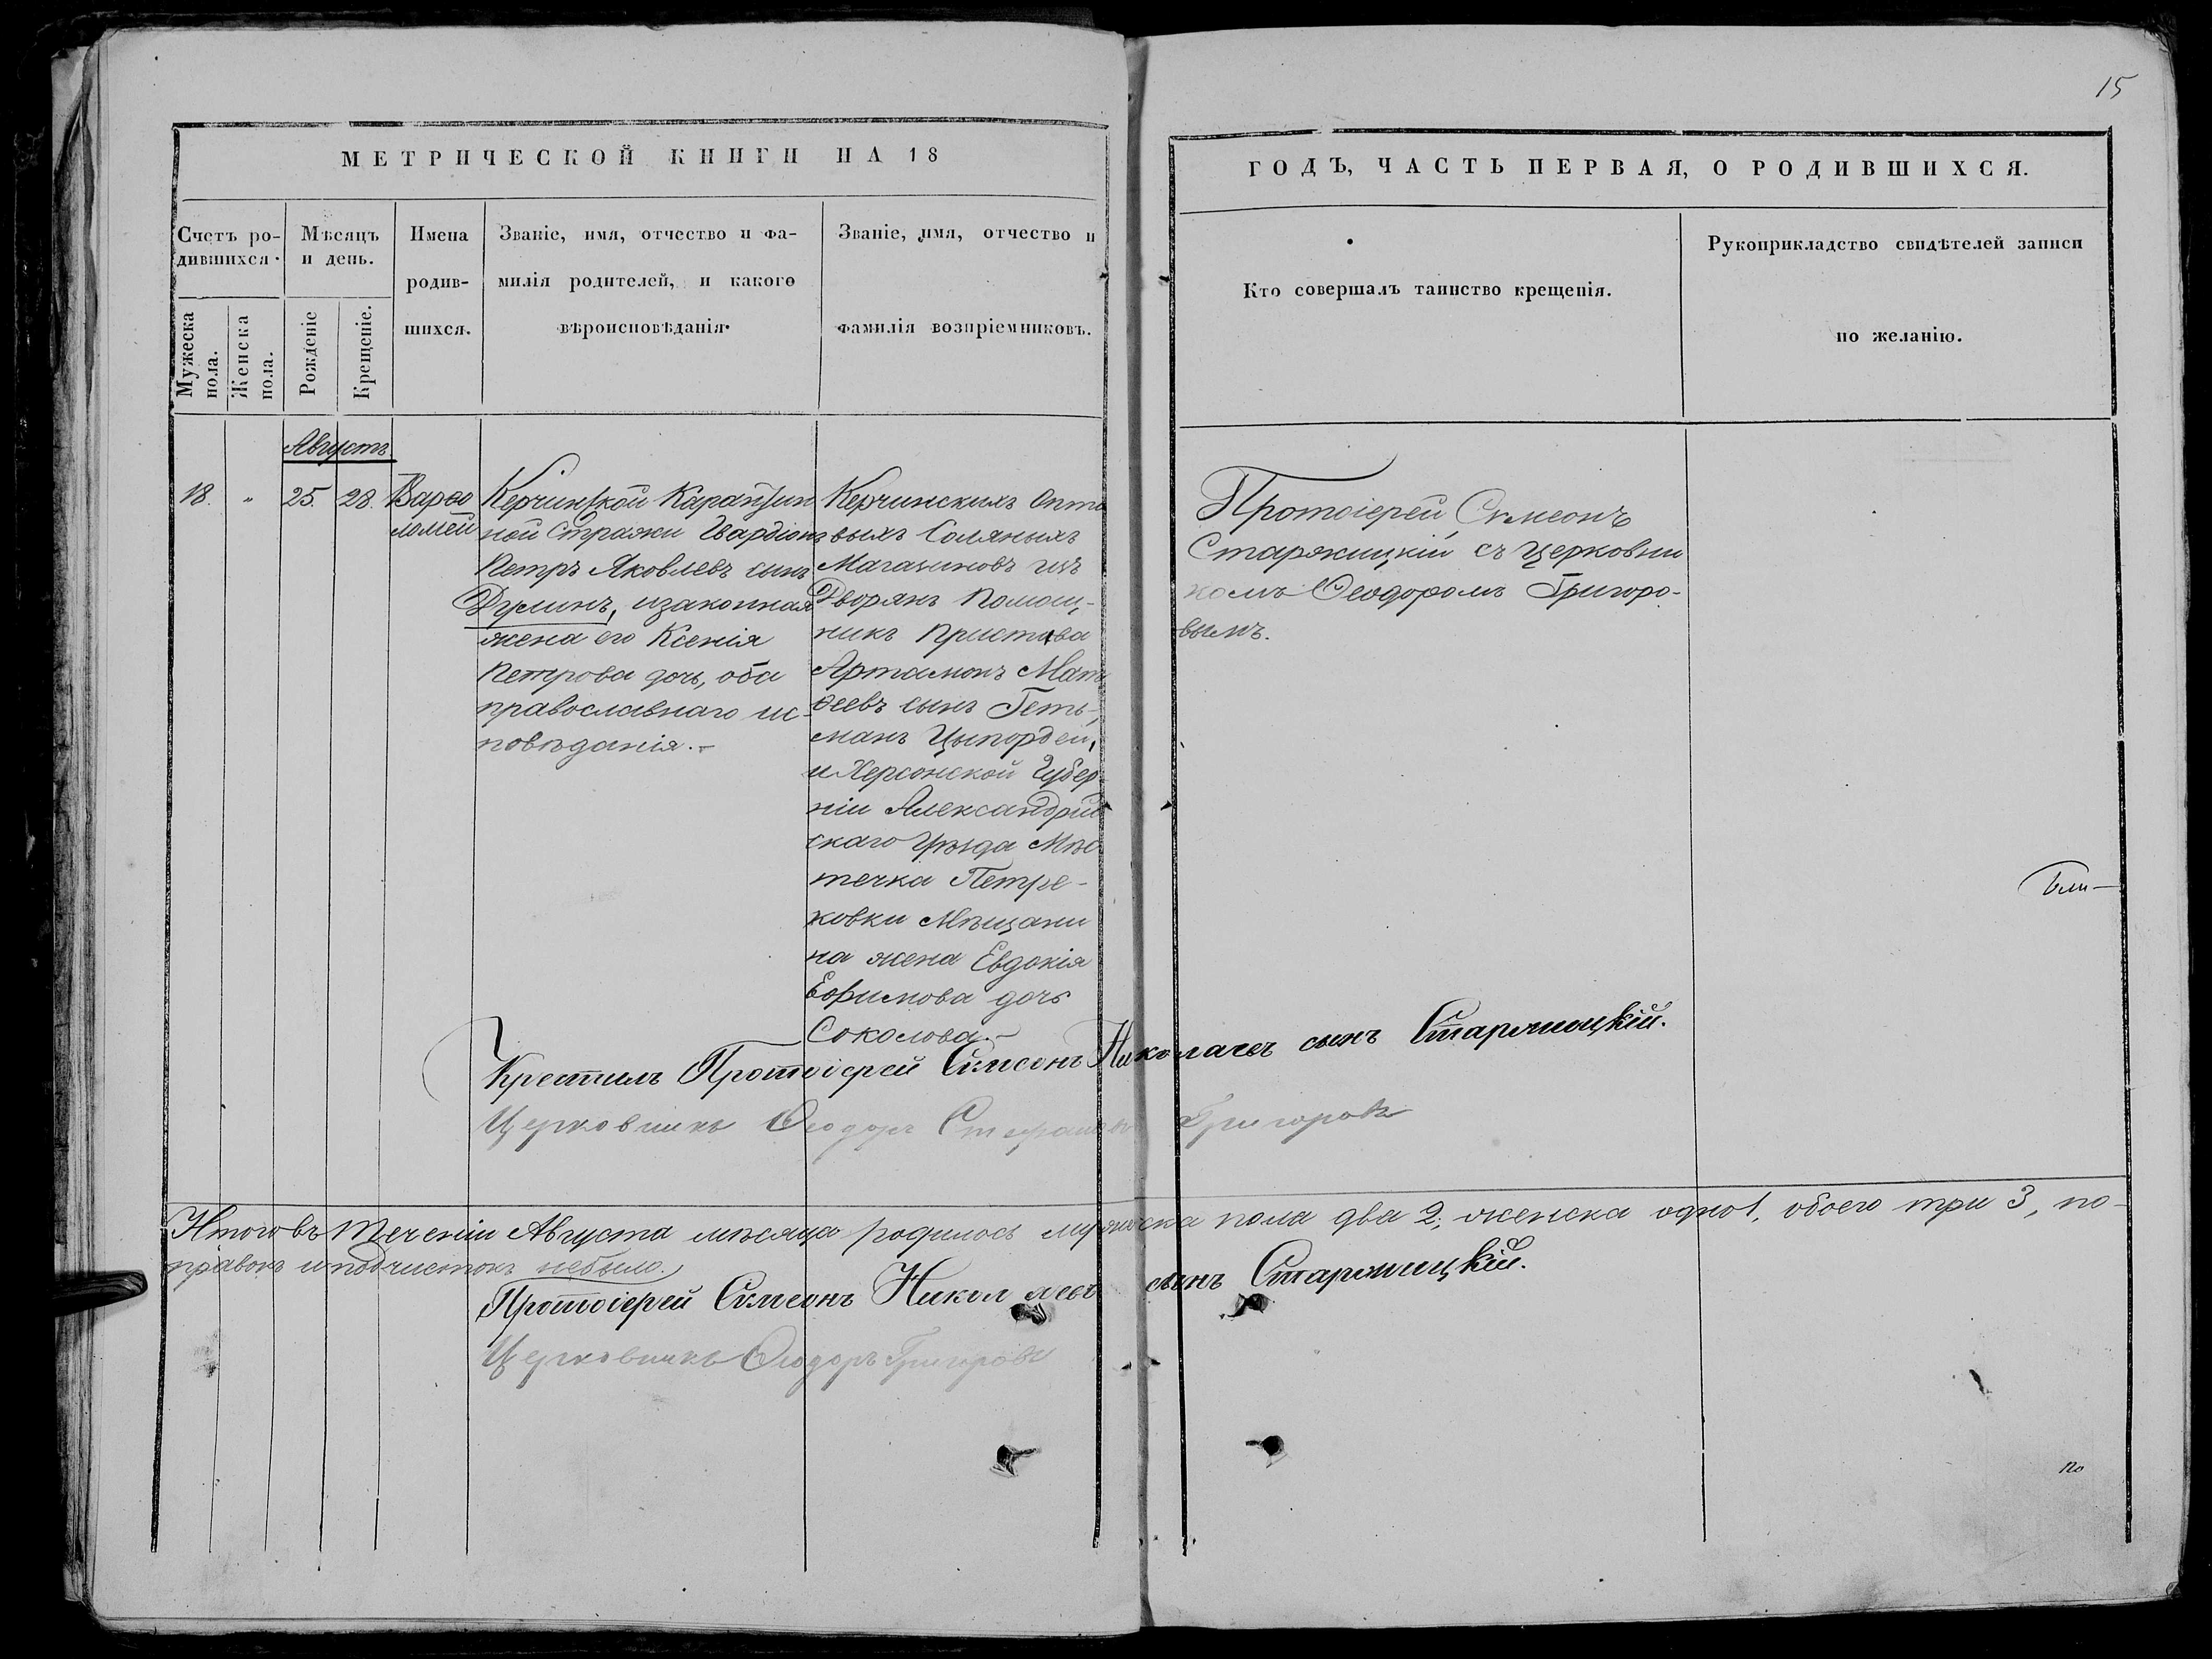 15
МЕТРИЧЕСКОЙ КНИГИ НА 18
ГОДЪ, ЧАСТЬ ПЕРВАЯ, О РОДИВШИХСЯ.
Счетъ ро-
дившихся.
Мужеска
пола.
Женска
пола.
Мѣсяцъ
и день.
Рожденіе
Крещеніе.
Имена
родив-
шихся.
Званіе, имя, отчество и фа-
милія родителей, и какого
вѣроисповѣданія.
Званіе, имя, отчество и
фамилія воспріемниковъ.
Кто совершалъ таинство крещенія.
Рукоприкладство свидѣтелей записи
по желанію.
Августъ
18. „ 25. 28.
Варѳо
ломей
Керчинской Карантин
ной Стражи Гвардіонъ
Петръ Яковлевъ сынъ
Дулинъ, и законная
жена его Ксенія
Петрова дочь, оба
православнаго ис-
повѣданія.-
Керчинскихъ Опто
выхъ Соляныхъ
Магазиновъ изъ
Дворянъ Помощ-
никъ Пристава
Артамонъ Мат
ѳеевъ сынъ Геть-
манъ
и Херсонской Губер-
ніи Александрій
скаго Уѣзда Мѣс
течка Петре-
ковки Мѣщани
на жена Евдокія
Ефимова дочь
Соколова.-
Протоіерей Сѵмеонъ
Старжицкій съ церковни
комъ Ѳеодоромъ Григоро-
вымъ.
Крестилъ Протоіерей Сѵмеонъ Николаевъ сынъ Старжицкій.
Церковникъ Ѳеодоръ Стефановъ Григоровъ
Итого въ теченіи Августа мѣсяца родилось мужеска пола два 2, женска одно 1, обоего три 3, по-
правокъ и подчистокъ небыло.
Протоіерей Сѵмеонъ Николаевъ сынъ Старжицкій.
Церковникъ Ѳеодоръ Григоровъ
по